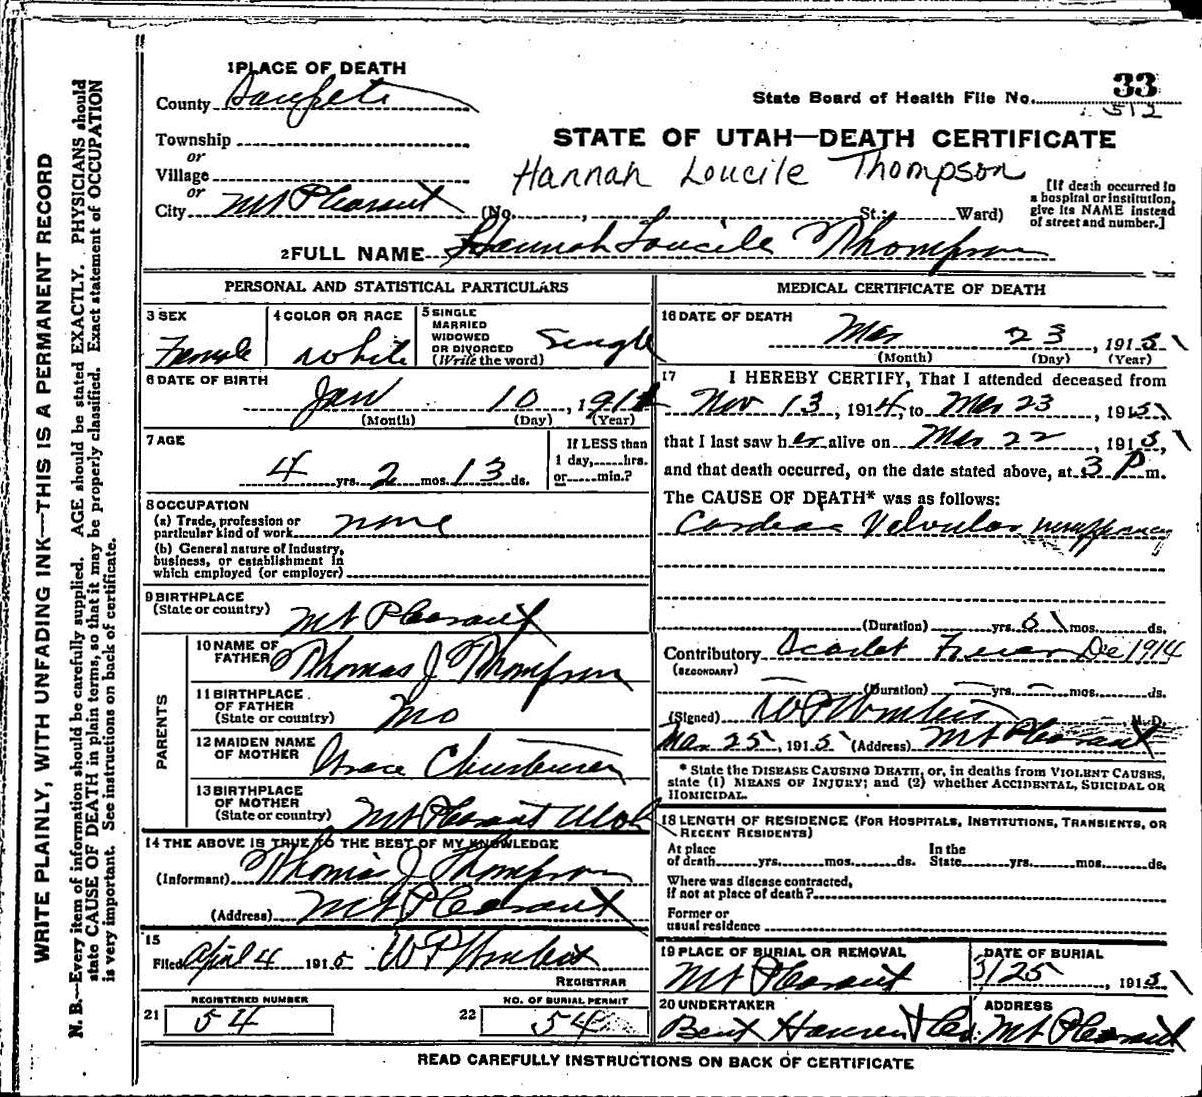 WRITE PLAINLY, WITH UNFADING INK—THIS IS A PERMANENT RECORD
N. B.—Every item of information should be carefully supplied. AGE should be stated EXACTLY. PHYSICIANS should
state CAUSE OF DEATH in plain terms, so that it may be properly classified. Exact statement of OCCUPATION
is very important. See instructions on back of certificate.
1 PLACE OF DEATH
County Sanpete
Township
or
Village
or
City Mt Pleasant
33
State Board of Health File No.
512
STATE OF UTAH—DEATH CERTIFICATE
Hannah Loucile Thompson
(No. , St.; Ward)
[If death occurred in
a hospital or institution,
give its NAME instead
of street and number.]
2 FULL NAME Hannah Loucile Thompson
PERSONAL AND STATISTICAL PARTICULARS
3 SEX
Female
4 COLOR OR RACE
white
5 SINGLE
MARRIED
WIDOWED
OR DIVORCED
(Write the word)
Single
6 DATE OF BIRTH
Jan 10, 191
(Month) (Day) (Year)
7 AGE
4 yrs. 2 mos. 13 ds.
If LESS than
1 day, hrs.
or min.?
8 OCCUPATION
(a) Trade, profession or
particular kind of work none
(b) General nature of Industry,
business, or establishment in
which employed (or employer)
9 BIRTHPLACE
(State or country) Mt Pleasant
PARENTS
10 NAME OF
FATHER Thomas J Thompson
11 BIRTHPLACE
OF FATHER
(State or country) Mo
12 MAIDEN NAME
OF MOTHER Grace Christensen
13 BIRTHPLACE
OF MOTHER
(State or country) Mt Pleasant Utah
14 THE ABOVE IS TRUE TO THE BEST OF MY KNOWLEDGE
(Informant) Thomas J Thompson
(Address) Mt Pleasant
15
Filed April 4 1915 W P
REGISTRAR
21 REGISTERED NUMBER
54
22 NO. OF BURIAL PERMIT
54
MEDICAL CERTIFICATE OF DEATH
16 DATE OF DEATH
Mar 23, 1915
(Month) (Day) (Year)
17 I HEREBY CERTIFY, That I attended deceased from
Nov 13, 1914, to Mar 23, 1915,
that I last saw her alive on Mar 22, 1915,
and that death occurred, on the date stated above, at 3 P m.
The CAUSE OF DEATH* was as follows:
Cardiac Valvular
(Duration) yrs. mos. ds.
Contributory Scarlet Fever Dec 1914
(SECONDARY)
(Duration) yrs. mos. ds.
(Signed) W P M. D.
Mar 25, 1915 (Address) Mt Pleasant
* State the DISEASE CAUSING DEATH, or, in deaths from VIOLENT CAUSES,
state (1) MEANS OF INJURY; and (2) whether ACCIDENTAL, SUICIDAL OR
HOMICIDAL.
18 LENGTH OF RESIDENCE (FOR HOSPITALS, INSTITUTIONS, TRANSIENTS, OR
RECENT RESIDENTS)
At place
of death yrs. mos. ds.
In the
State yrs. mos. ds.
Where was disease contracted,
if not at place of death?
Former or
usual residence
19 PLACE OF BURIAL OR REMOVAL
Mt Pleasant
DATE OF BURIAL
3/25, 1915
20 UNDERTAKER
Bent Hansen & Co.
ADDRESS
Mt Pleasant
READ CAREFULLY INSTRUCTIONS ON BACK OF CERTIFICATE